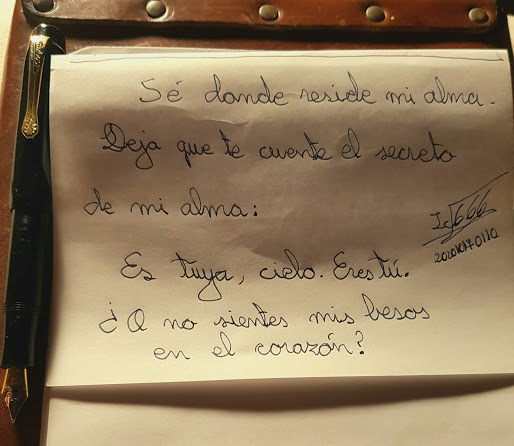 Sé donde reside mi alma.
Deja que te cuente el secreto
de mi alma:
Es tuya, cielo. Eres tú.
¿O no sientes mis besos
en el corazón?